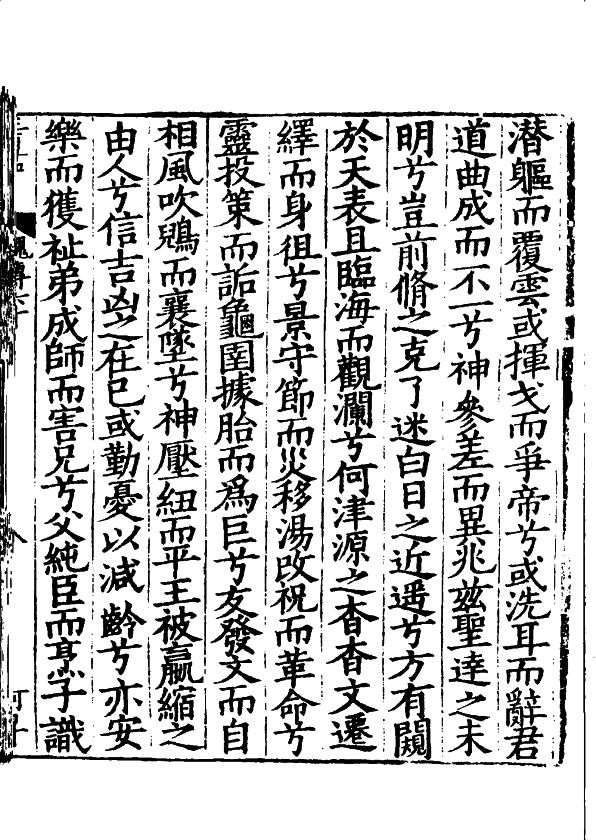 潜軀而覆雲或揮戈而爭帝兮或洗耳而辭君
道曲成而不一兮神參差而異兆兹聖達之未
明兮豈前脩之克了迷白日之近遥兮方有闚
於天表且臨海而觀瀾兮何津源之杳杳文遷
繹而身徂兮景守節而災移湯改祝而革命兮
靈投策而詬龜圉據胎而爲巨兮友發文而自
相風吹鴞而襄墜兮神壓紐而平王被嬴縮之
由人兮信吉凶之在巳或勤憂以減齡兮亦安
樂而獲祉弟成師而害兄兮父純臣而烹子識